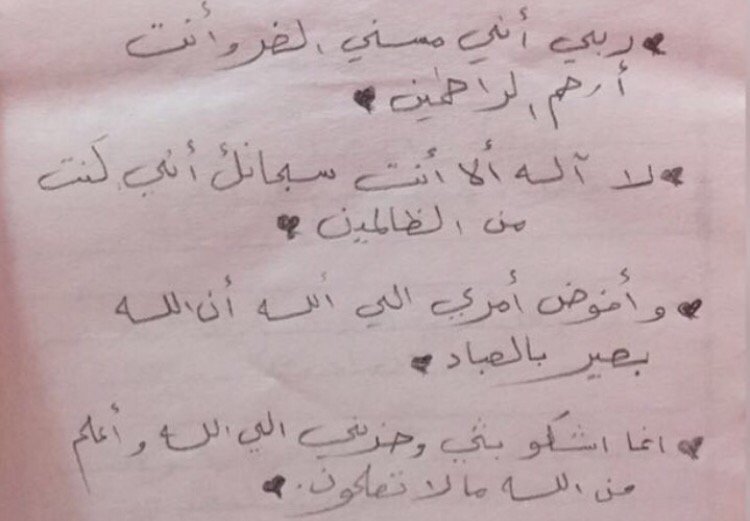 ربي أني مسني الضر وأنت
أرحم الراحمين
لا آله ألا أنت سبحانك أني كنت
من الظالمين
وأفوض أمري الي ألله أن الله
بصير بالعباد
انما اشكو بثي وحزني الي الله وأعلم
من الله مالا تعلمون.